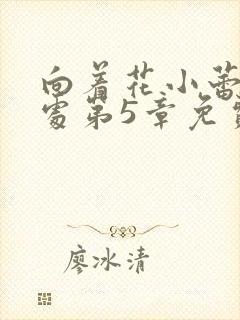 向着花小蕾
处第5章免费
廖冰清